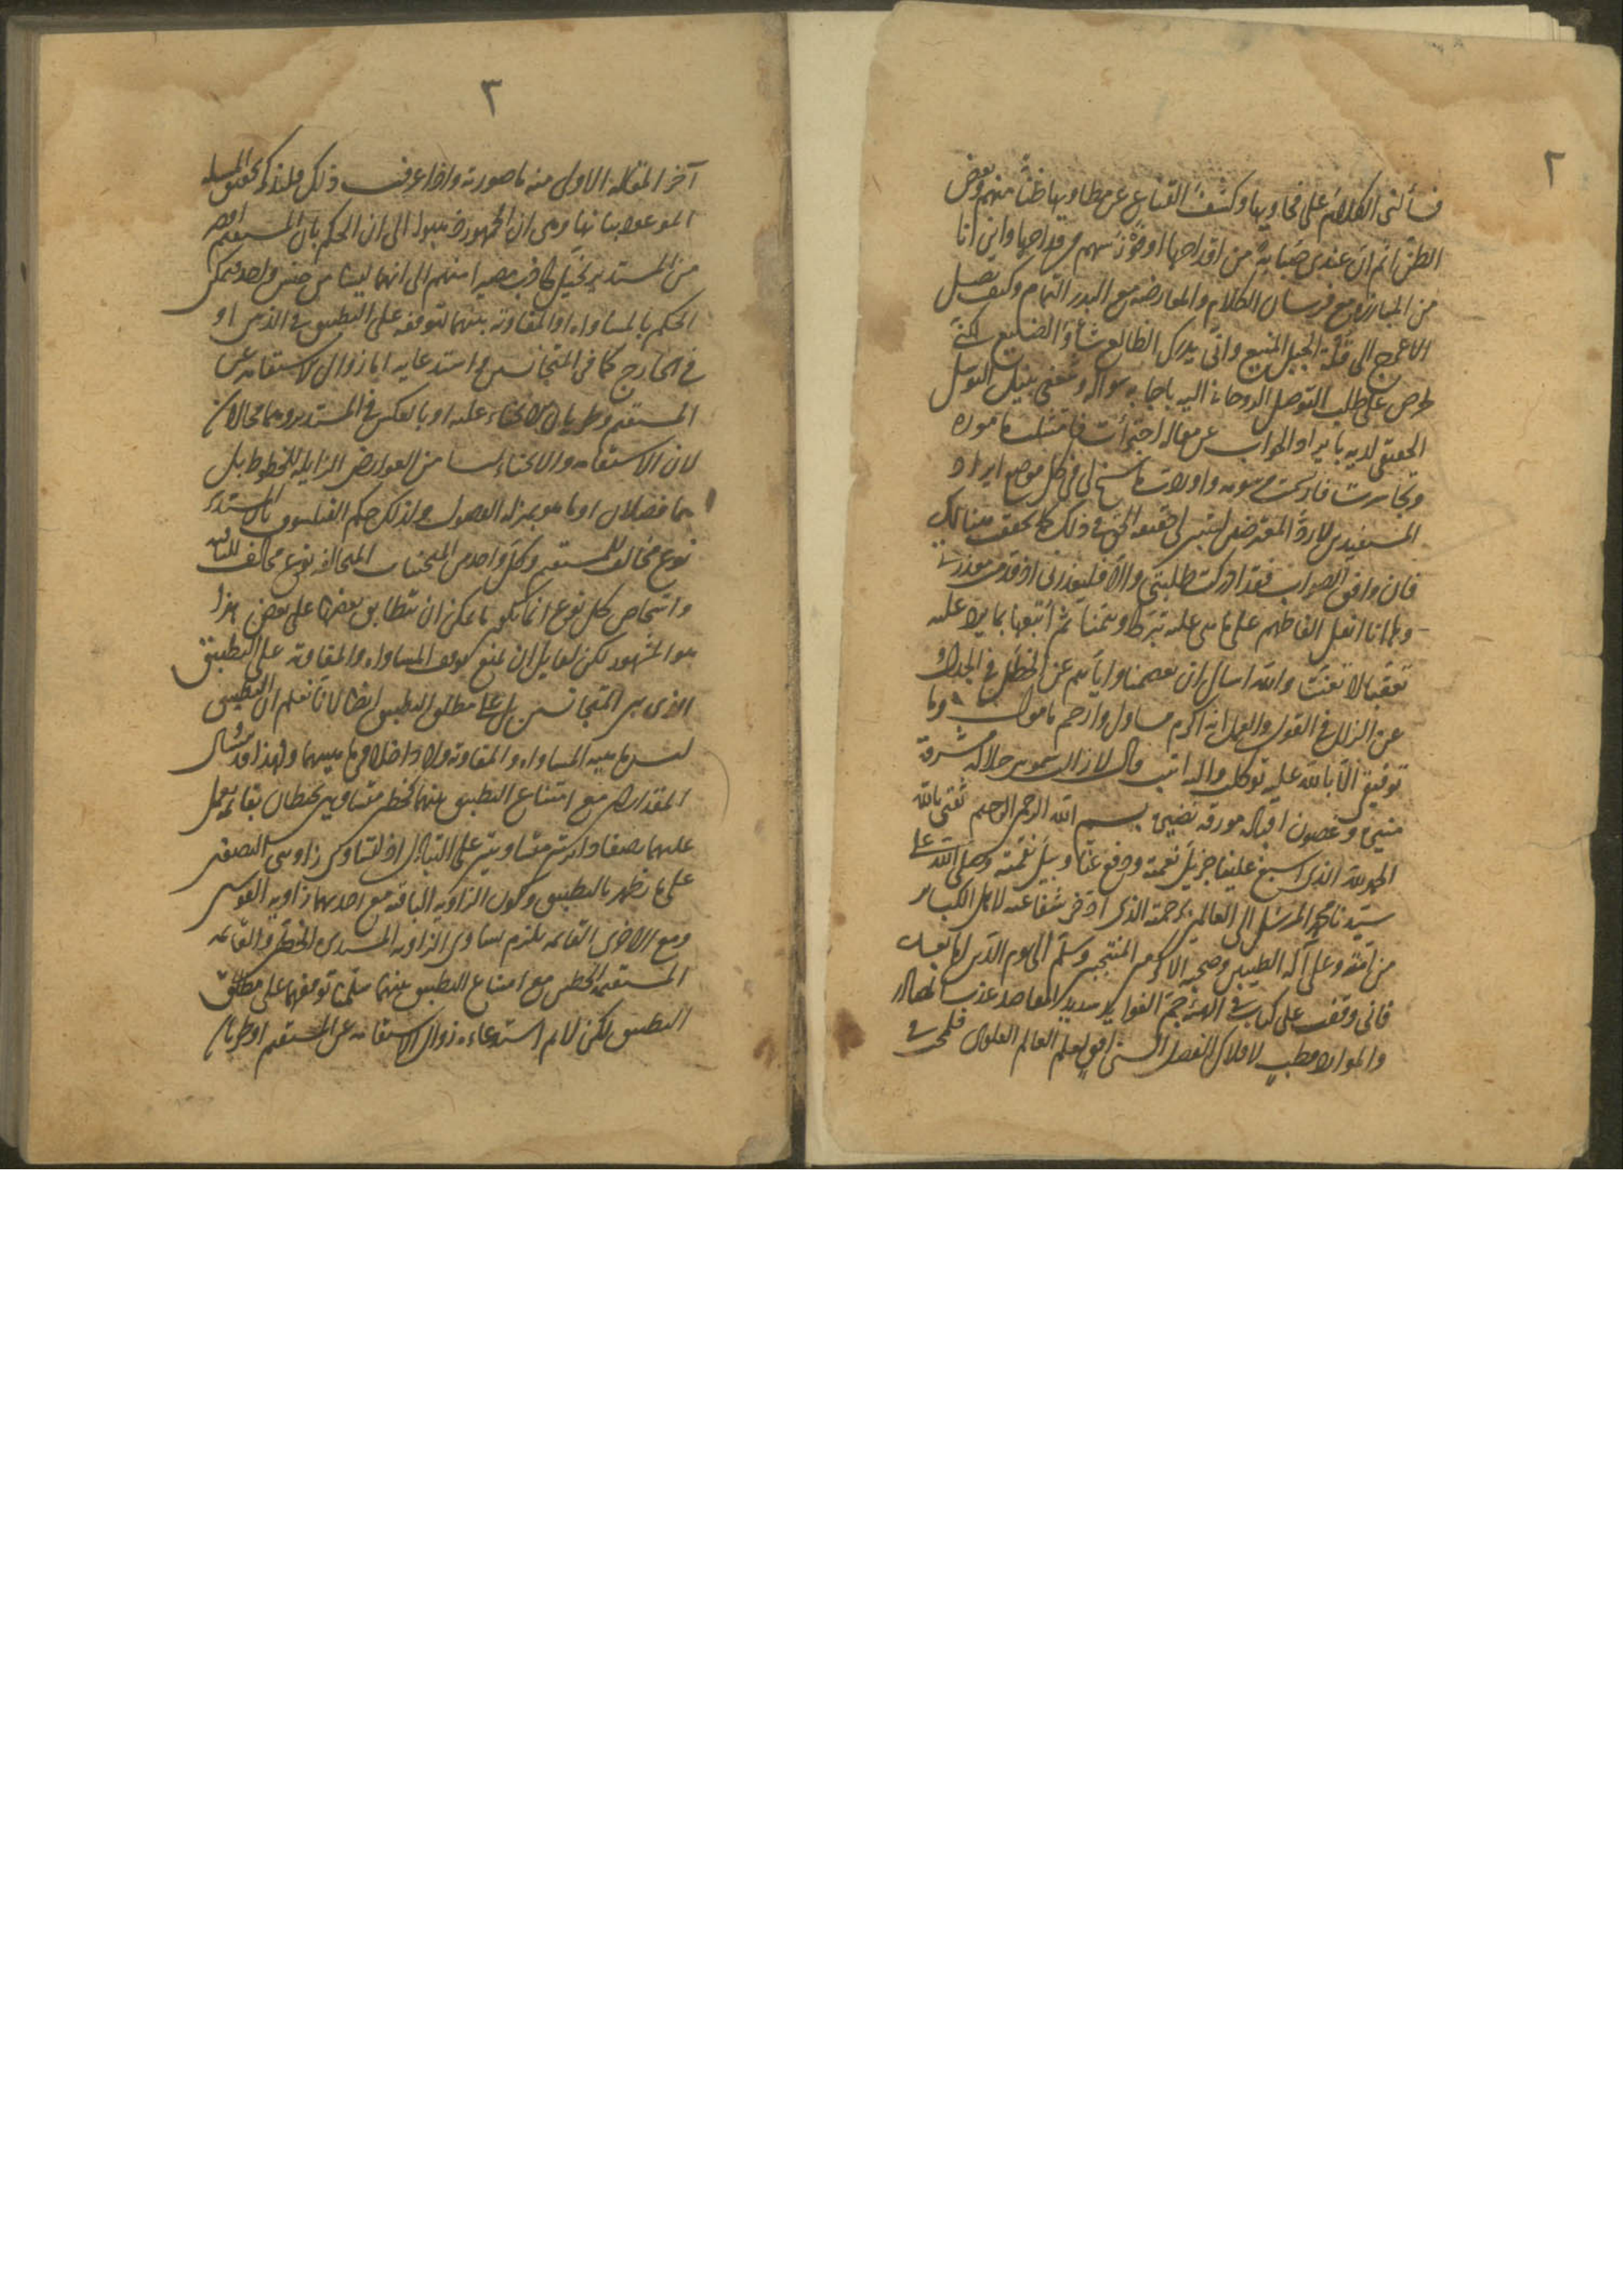 ٢
فسألنى الكلام على فحاويها وكشف القناع عن مطاويها ظنا منهم وبعض
الظن اثم ان عندى صبابة من اقداحها او فوز سهم من قداحها وانى انا
من المبارزة مع فرسان الكلام والمعارضة مع البدر التمام وكيف يصل
الاعرج الى قلة الجبل المنيع وانى يدرك الظالع شأو الضليع لكننى
لحرصى على طلب التوصل الروحانى اليه باجابة سواله وشغفى بنيل التوسل
الحقيقى لديه بايراد الجواب عن مقاله اجترأت فامتثلت مأموره
وتجاسرت فاردت مرسومه واوردت ما سنح لى فى كل موضع ايراد
المستفيدين لا رد المعترضين ليتبين لى حقيقة الحق فى ذلك كما تحقق هنالك
فان وافق الصواب فقد ادركت طلبتى والا فليعذرنى اذ قدمت معذرتى
وها انا انقل الفاظهم على ما هى عليه تبركا وتيمنا ثم أتبعها بما يرد عليه
تعقبا لا تعنتا والله اسال ان يعصمنا واياهم عن الخطل فى الجدال و
عن الزلل فى القول والعمل انه اكرم مسئول وارحم مامول وما
توفيقى الا بالله عليه توكلت واليه انيب قال لا زالت شموس جلاله مشرقة
مضيئ وغصون اقباله مورقة نضيئ بسم الله الرحمن الرحيم ثقتى بالله
الحمد لله الذى اسبغ علينا جزيل نعمته ودفع عنا وبيل نقمته وصلى الله على
سيدنا محمد المرسل الى العالمين رحمة الذى ادخر شفاعته لاهل الكبائر
من امته وعلى آله الطيبين وصحبه الاكرمين المنتجبين وسلم الى يوم الدين اما بعد
فانى وقفت على كتاب فى الهيئة جم الفوايد سديد المقاصد عذب المصادر
والموارد قطب لافلاك الفضل السنى افق لعلم العالم العلوى فلمحت فى
٣
آخر المقالة الاولى منه ما صورته واذا عرفت ذلك فلنذكر تحقيق المسله
الموعود بيانها وهى ان الجمهور ذهبوا الى ان الحكم بان المستقيم اقصر
من المستدير تخيل كاذب مصيرا منهم الى انهما ليسا من جنس واحد فيمكن
الحكم بالمساواه او المفاوته بينهما لتوقفه على التطبيق فى الذهن او
فى الخارج كما فى المتجانسين واستدعايه اما زوال الاستقامه عن
المستقيم وطريان الانحناء عليه او بالعكس فى المستدير وهما محالان
لان الاستقامه والانحناء ليسا من العوارض الزايله للخطوط بل
هما فصلان او ما هو بمنزلة الفصول ولذلك حكم الفيلسوف بان المستدير
نوع مخالف للمستقيم وكل واحد من المنحنيات المتخالفه نوع مخالف للباقيه
واشخاص كل نوع انما يكون ما يمكن ان يتطابق بعضها على بعض هذا
هو المشهور لكن لقايل ان يمنع توقف المساواه والمفاوته على التطبيق
الذى بين المتجانسين بل على مطلق التطبيق ايضا لانا نعلم ان التطبيق
ليس ماهيه المساواه والمفاوته ولا داخلا فى ماهيتهما ولهذا قد يتساوى
المقداران مع امتناع التطبيق بينهما كخطين متساويين يحيطان بقائمة يعمل
عليهما نصفا دائرتين متساويتين على التبادل اذ لتساوى زاويتى النصفين
على ما يظهر بالتطبيق وكون الزاويه الباقيه مع احديهما زاوية القوسين
ومع الاخرى القائمه يلزم تساوى الزاويه المستديره الخطين والقائمه
المستقيمه الخطين مع امتناع التطبيق بينهما سلمنا توقفهما على مطلق
التطبيق لكن لا نم استدعاءه زوال الاستقامه عن المستقيم او طريان